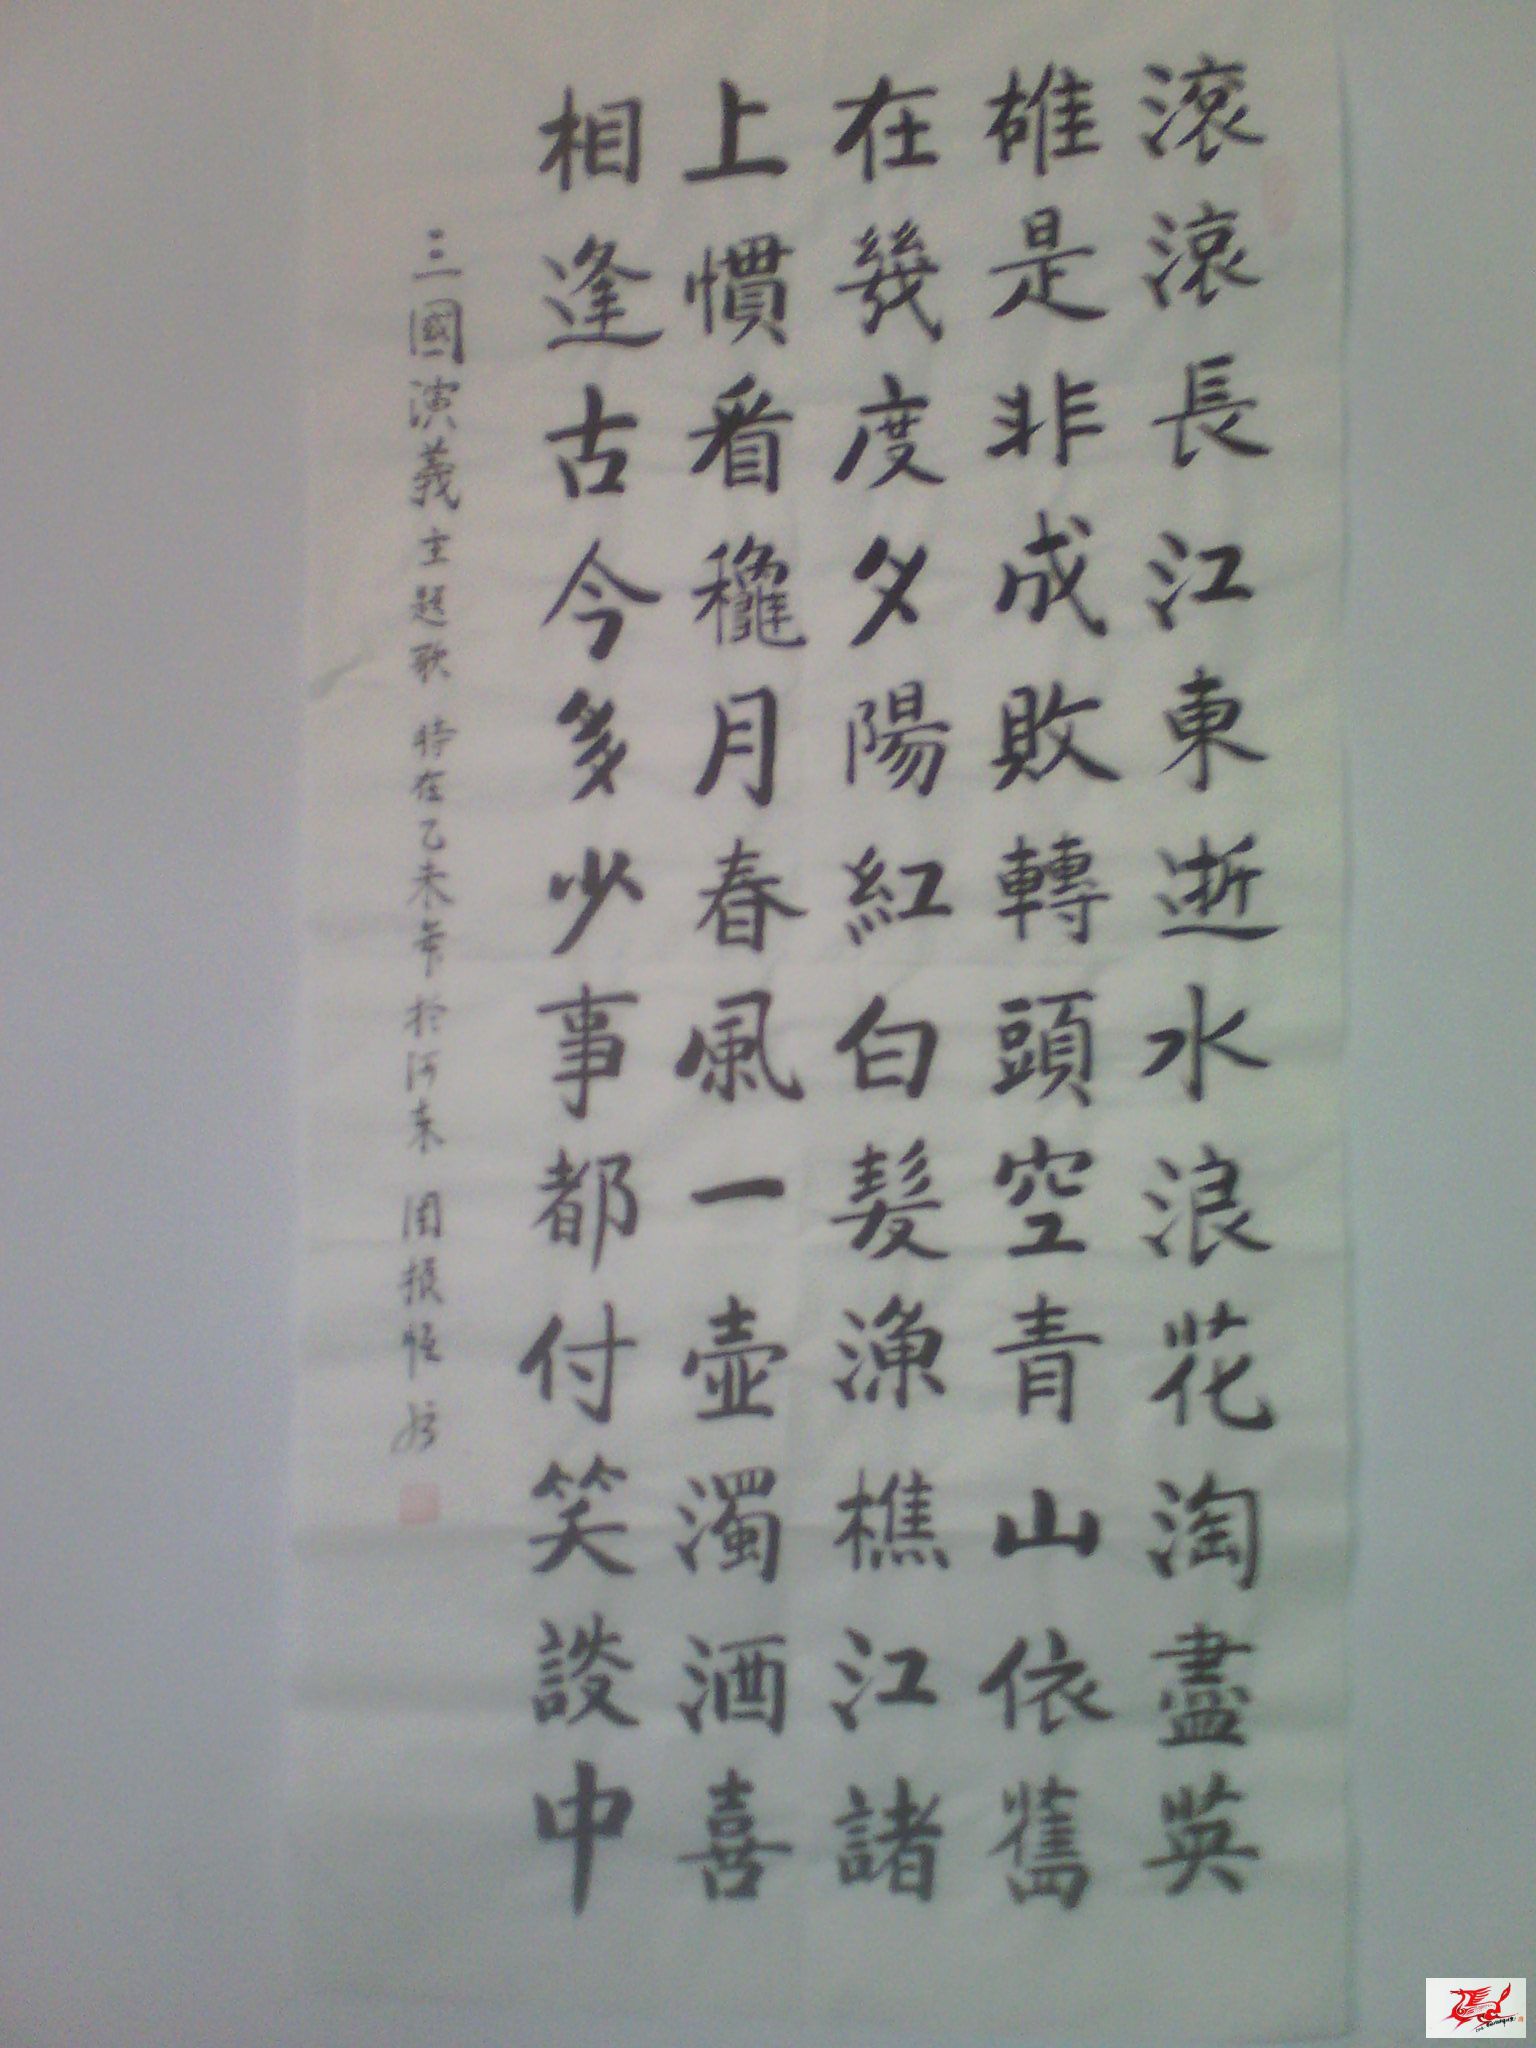 滚滚長江東逝水浪花淘盡英
雄是非成敗轉頭空青山依舊
在幾度夕陽紅白髮漁樵江諸
上慣看穐月春風一壺濁酒喜
相逢古今多少事都付笑談中
三國演義主題歌 特在乙未年於河东 周振恒 书